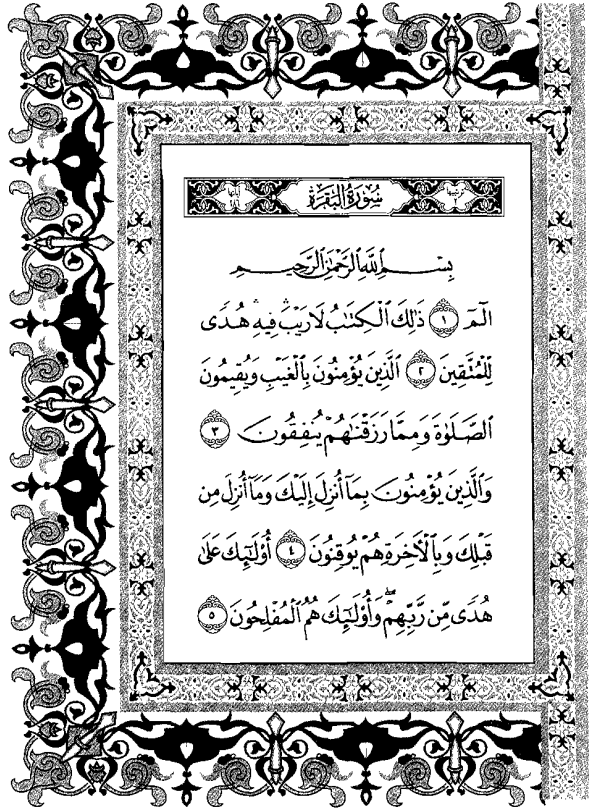 سُورَةُ الْبَقَرَةِ
بِسْمِ اللَّهِ الرَّحْمَٰنِ الرَّحِيمِ
الٓمٓ ١ ذَٰلِكَ الْكِتَابُ لَا رَيْبَ ۛ فِيهِ ۛ هُدًى
لِّلْمُتَّقِينَ ٢ الَّذِينَ يُؤْمِنُونَ بِالْغَيْبِ وَيُقِيمُونَ
الصَّلَوٰةَ وَمِمَّا رَزَقْنَاهُمْ يُنفِقُونَ ٣
وَالَّذِينَ يُؤْمِنُونَ بِمَا أُنزِلَ إِلَيْكَ وَمَا أُنزِلَ مِن
قَبْلِكَ وَبِالْآخِرَةِ هُمْ يُوقِنُونَ ٤ أُوْلَٰئِكَ عَلَىٰ
هُدًى مِّن رَّبِّهِمْ ۖ وَأُوْلَٰئِكَ هُمُ الْمُفْلِحُونَ ٥